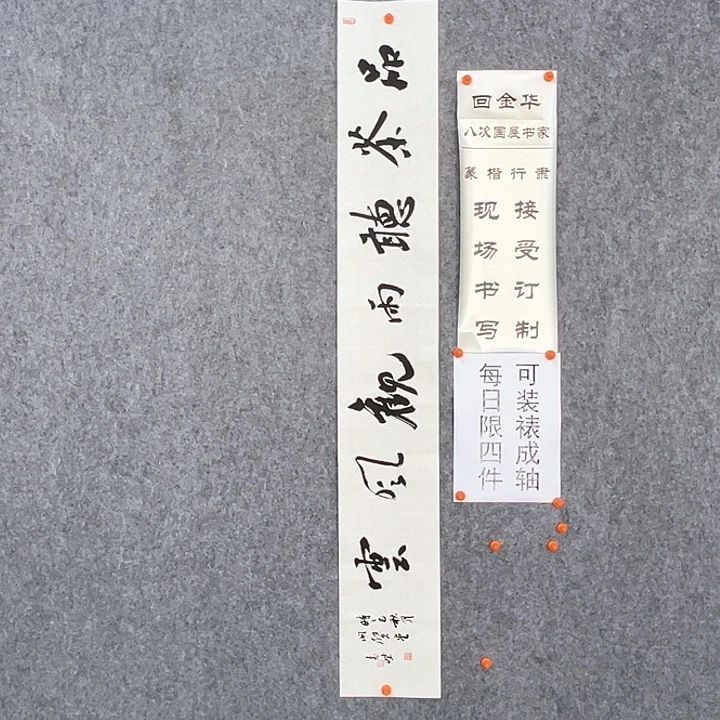 品茶聽雨觀風雲
回金华
八次国展书家
篆楷行隶
接受订制
现场书写
可装裱成轴
每日限四件